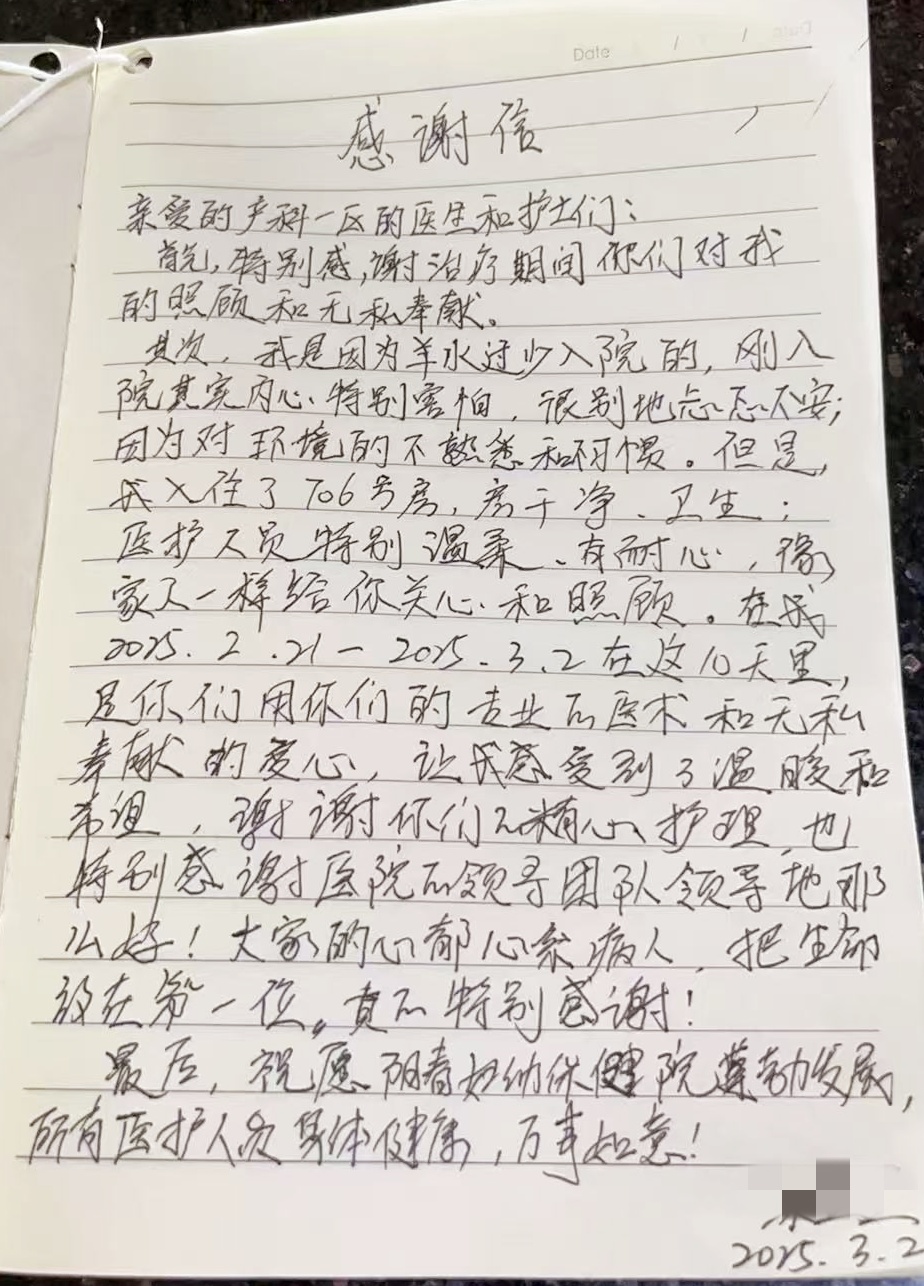 Date / /
感谢信
亲爱的产科一区的医生和护士们：
首先，特别感谢治疗期间你们对我
的照顾和无私奉献。
其次，我是因为羊水过少入院的，刚入
院其实内心特别害怕，很别地忐忑不安；
因为对环境的不熟悉和不习惯。但是，
我入住了706号房，房干净、卫生；
医护人员特别温柔、有耐心，像
家人一样给你关心和照顾。在我
2025.2.21－2025.3.2在这10天里，
是你们用你们的专业的医术和无私
奉献的爱心，让我感受到了温暖和
希望，谢谢你们的精心护理，也
特别感谢医院的领导团队领导地那
么好！大家的心都心系病人，把生命
放在第一位。真的特别感谢！
最后，祝愿阳春妇幼保健院蓬勃发展，
所有医护人员身体健康，万事如意！
2025.3.2